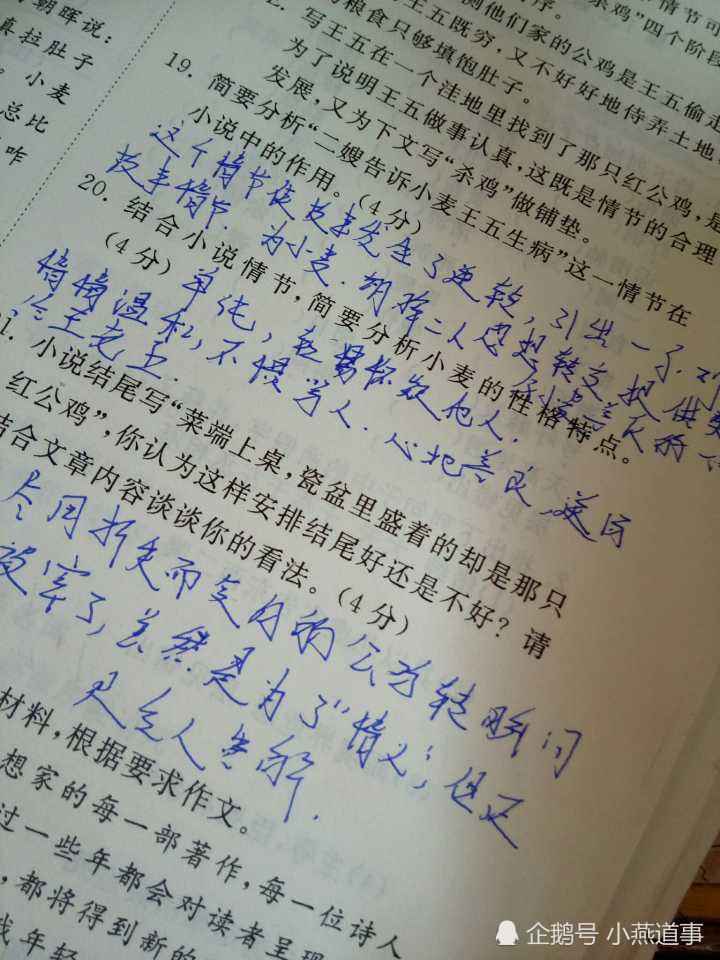 朝晖说：
真拉肚子
小麦
总比
咋
杀鸡”四个阶段
测他们家的公鸡是王五偷走
王五既穷，又不好好地侍弄土地
的粮食只够填饱肚子。
写王五在一个洼地里找到了那只红公鸡，是
为了说明王五做事认真，这既是情节的合理
发展，又为下文写“杀鸡”做铺垫。
19. 简要分析“二嫂告诉小麦王五生病”这一情节在
小说中的作用。（4分）
这个情节使故事发生了逆转，引出一系列
故事情节。为小麦、明择二人思想转变提供
20. 结合小说情节，简要分析小麦的性格特点。
（4分）
单纯，轻易怀疑他人.
温和，不愠 人. 心地善良
21. 小说结尾写“菜端上桌，瓷盆里盛着的却是那只
红公鸡”，你认为这样安排结尾好还是不好？请
结合文章内容谈谈你的看法。（4分）
而复得的公鸡转瞬间
被宰了，虽然是为了“情义”，但还
是令人费解.
材料，根据要求作文。
想家的每一部著作，每一位诗人
过一些年都会对读者呈现
，都将得到新的
我年轻
企鹅号 小燕道事